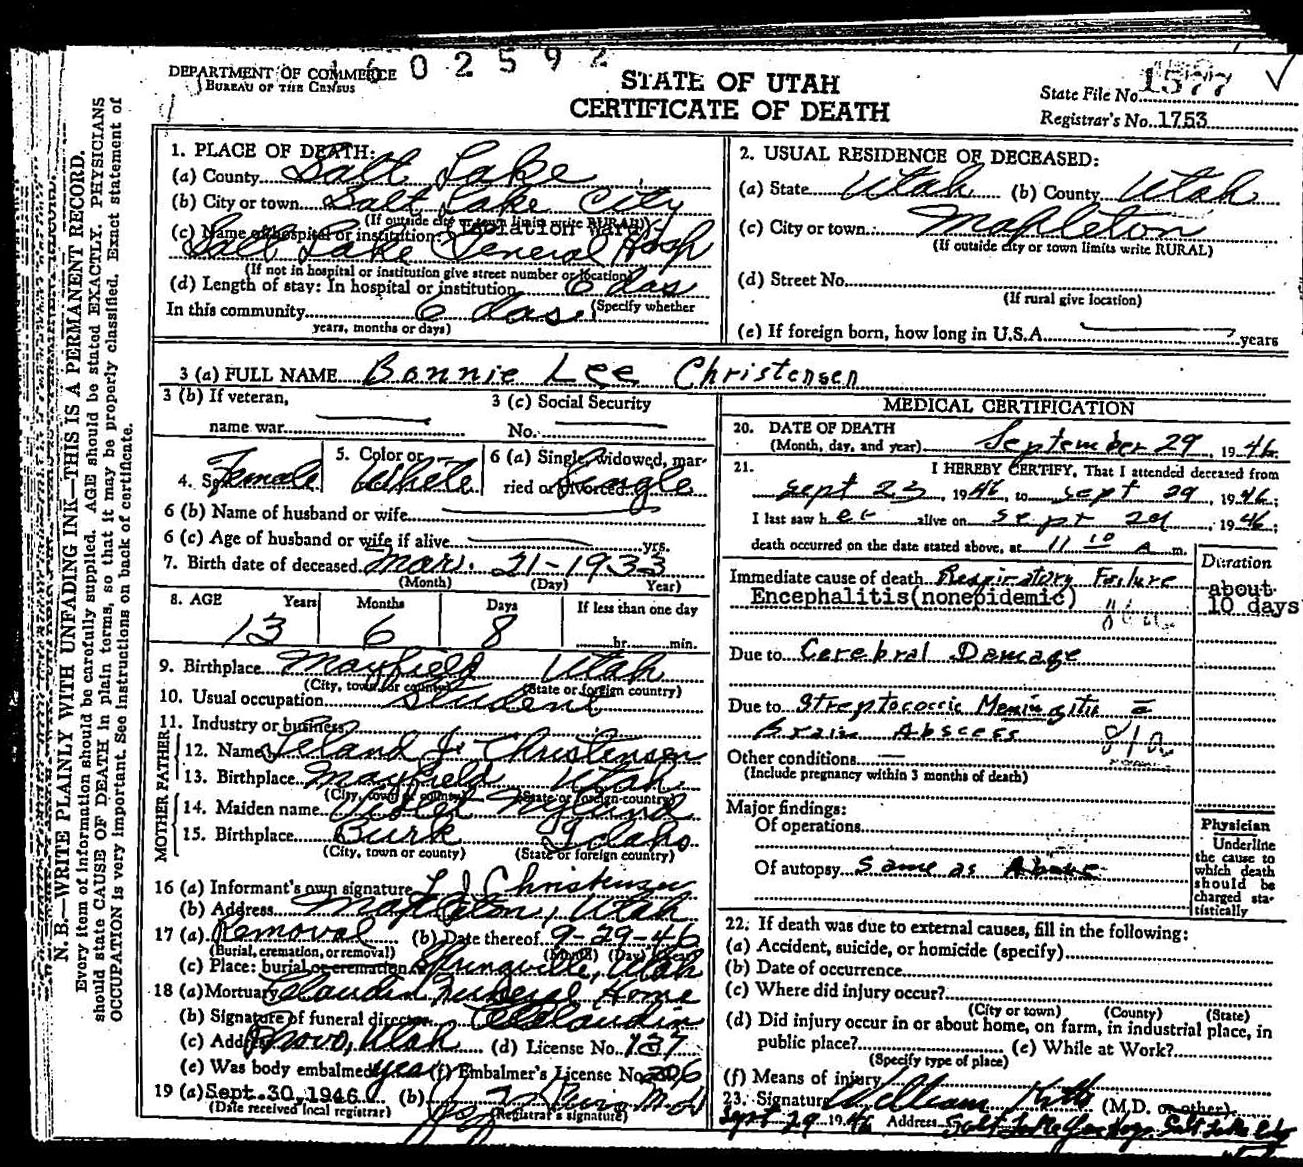 602592
DEPARTMENT OF COMMERCE
BUREAU OF THE CENSUS
STATE OF UTAH
CERTIFICATE OF DEATH
State File No. 1577
Registrar's No. 1753
N. B.—WRITE PLAINLY WITH UNFADING INK—THIS IS A PERMANENT RECORD.
Every item of information should be carefully supplied. AGE should be stated EXACTLY. PHYSICIANS
should state CAUSE OF DEATH in plain terms, so that it may be properly classified. Exact statement of
OCCUPATION is very important. See instructions on back of certificate.
1. PLACE OF DEATH:
(a) County Salt Lake
(b) City or town Salt Lake City
(If outside city or town limits write RURAL)
(c) Name of hospital or institution: Isolation Ward
Salt Lake General Hosp
(If not in hospital or institution give street number or location)
(d) Length of stay: In hospital or institution 6 das
In this community 6 das (Specify whether
years, months or days)
2. USUAL RESIDENCE OF DECEASED:
(a) State Utah (b) County Utah
(c) City or town Mapleton
(If outside city or town limits write RURAL)
(d) Street No.
(If rural give location)
(e) If foreign born, how long in U.S.A. years
3 (a) FULL NAME Bonnie Lee Christensen
3 (b) If veteran,
name war
3 (c) Social Security
No.
4. Sex Female
5. Color or White
6 (a) Single, widowed, mar-
ried or divorced Single
6 (b) Name of husband or wife
6 (c) Age of husband or wife if alive yrs.
7. Birth date of deceased Mar. 21-1933
(Month) (Day) Year)
8. AGE Years Months Days If less than one day
13 6 8 hr. min.
9. Birthplace Mayfield Utah
(City, town or county) (State or foreign country)
10. Usual occupation Student
11. Industry or business
FATHER
12. Name Leland J. Christensen
13. Birthplace Mayfield Utah
(City, town or county) (State or foreign country)
MOTHER
14. Maiden name
15. Birthplace Burk Idaho
(City, town or county) (State or foreign country)
16 (a) Informant's own signature L J Christensen
(b) Address Mapleton, Utah
17 (a) Removal (b) Date thereof 9-29-46
(Burial, cremation, or removal) (Month) (Day) (Year)
(c) Place: burial or cremation Springville, Utah
18 (a) Mortuary Claudin Funeral Home
(b) Signature of funeral director Claudin
(c) Address Provo, Utah (d) License No. 137
(e) Was body embalmed yes (f) Embalmer's License No. 206
19 (a) Sept. 30, 1946 (b) M.D.
(Date received local registrar) (Registrar's signature)
MEDICAL CERTIFICATION
20. DATE OF DEATH
(Month, day, and year) September 29, 1946
21. I HEREBY CERTIFY, That I attended deceased from
Sept 23, 1946, to Sept 29, 1946;
I last saw her alive on Sept 29, 1946;
death occurred on the date stated above, at 11 10 A m.
Duration
Immediate cause of death Respiratory Failure
Encephalitis(nonepidemic)
about
10 days
Due to Cerebral Damage
Due to Streptococcic Meningitis c̄
Brain Abscess 81a
Other conditions
(Include pregnancy within 3 months of death)
Major findings:
Of operations
Of autopsy Same as Above
Physician
Underline
the cause to
which death
should be
charged sta-
tistically
22. If death was due to external causes, fill in the following:
(a) Accident, suicide, or homicide (specify)
(b) Date of occurrence
(c) Where did injury occur?
(City or town) (County) (State)
(d) Did injury occur in or about home, on farm, in industrial place, in
public place? (e) While at Work?
(Specify type of place)
(f) Means of injury
23. Signature William (M.D. or other)
Sept 29 1946 Address Salt Lake Gen Hosp. Salt Lake City